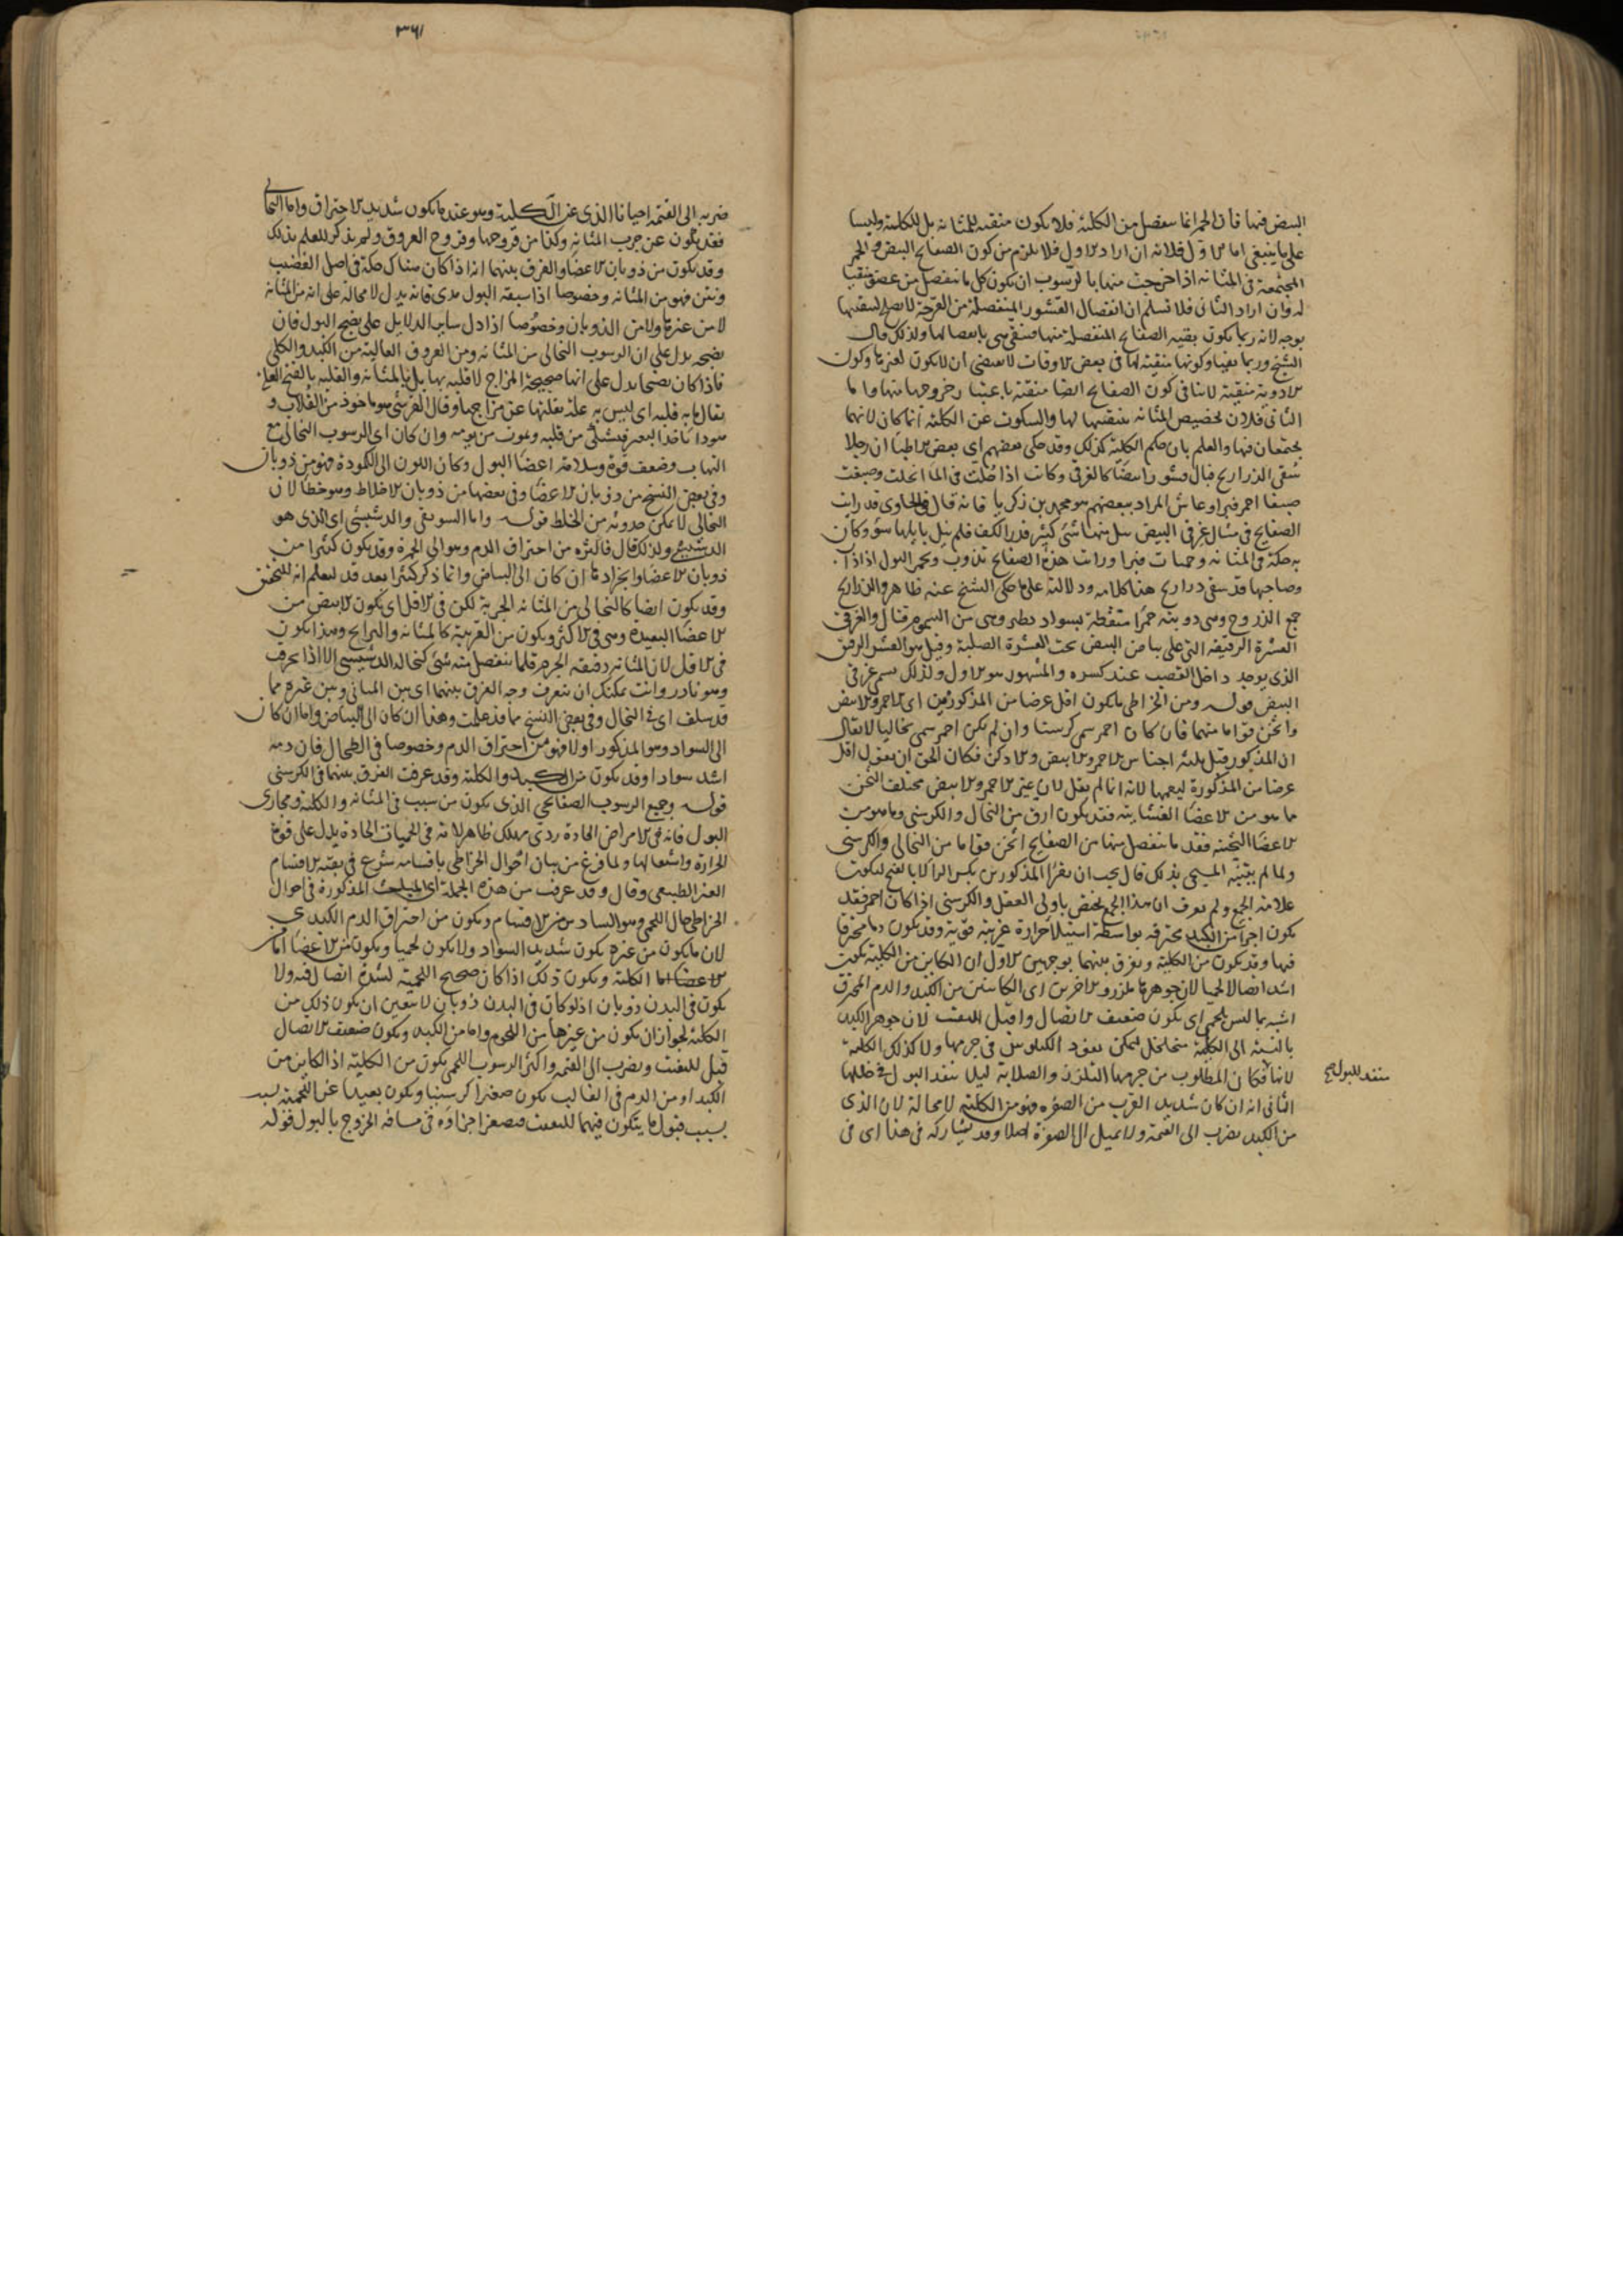 البيض فيها فان الحمر انما تنفصل من الكلية فلا يكون منقية للمثانة بل للكلية وليسا
على ما ينبغي اما الاول فلانه ان اراد الاول فلا يلزم من كون الصفايح البيض والحمر
المجتمعة في المثانة اذا خرجت منها بالرسوب ان يكون كل ما ينفصل من عضو منقيا
له وان اراد الثاني فلا نسلم ان انفصال القشور المنفصلة من القرحة لا يصلح لتنقيتها
بوجه لانه ربما يكون بقية الصفايح المنفصلة منها فتنقى هي بانفصالها ولذلك قال
الشيخ وربما وكونها منقية لها في بعض الاوقات لا يقتضي ان لا يكون لغيرها وكون
الادوية منقية لا ينافي كون الصفايح ايضا منقية باعتبار خروجها منها واما
الثاني فلان تخصيص المثانة بتنقيتها لها والسكوت عن الكلية انما كان لانهما
يجتمعان فيها والعلم بان حكم الكلية كذلك وقد حكى بعضهم اي بعض الاطباء ان رجلا
سقي الذراريح فبال قشورا بيضا كالغرقئ وكانت اذا حللت في الماء انحلت وصبغت
صبغا احمر فبرا وعاش المراد ببعضهم هو محمد بن زكريا فانه قال في الحاوي قد رايت
الصفايح في مثال غرقئ البيض يبل منها شئ كثير قدر الكف فلم ينل بايلها سوء وكان
به حكة في المثانة وحميات فبرا ورايت هذه الصفايح تذوب وتحمر البول اذا ذا
وصاحبها قد سقي ذراريح هذا كلامه ودلالته على ما حكى الشيخ عنه ظاهر والذراريح
جمع الذروح وهي دويبة حمرا منقطة بسواد تطير وهي من السموم قتال والغرقئ
القشرة الرقيقة التي على بياض البيض تحت القشرة الصلبة وقيل هو القشر الرقيق
الذي يوجد داخل القصب عند كسره والمشهور هو الاول ولذلك يسم غرقئ
البيض قوله ومن الخراطي ما يكون اقل عرضا من المذكورين اي الاحمر والابيض
واثخن قواما منهما فان كان احمر سمي كرسنيا وان لم يكن احمر سمي نخاليا لا يقال
ان المذكور قبل ثلثة اجناس الاحمر والابيض والادكن فكان الحق ان يقول اقل
عرضا من المذكورة ليعمها لانه انما لم يقل لان غير الاحمر والابيض مختلف الثخن
ما هو من الاعضا الغشايية فقد يكون ارق من النخال والكرسني وما هو من
الاعضا الثخينة فقد ما ينفصل منها من الصفايح اثخن قواما من النخالي والكرسني
ولما لم يتنبه المسيحي بذلك قال يجب ان يقرا المذكورين بكسر الرا لا بالفتح ليكون
علامة الجمع ولم يعرف ان هذا الجمع يختص باولي العقل والكرسني اذا كان احمر فقد
يكون اجزا من الكبد محترقة بواسطة استيلا حرارة غريبة قوية وقد يكون دما محترقا
فيها وقد يكون من الكلية ويفرق بينهما بوجهين الاول ان الكاين من الكلية يكون
اشد اتصالا لحميا لان جوهرها ملزز والاخرين اي الكاينين من الكبد والدم المحترق
اشبه بما ليس بلحمي اي يكون ضعيف الاتصال واقبل للتفتت لان جوهر الكبد
بالنسبة الى الكلية متخلخل ليمكن نفوذ الكيلوس في جرمها ولا كذلك الكلية
لانها فكان المطلوب من جرمها التلزز والصلابة ليلا ينفذ البول في خللها
الثاني انه ان كان شديد القرب من الصفره فهو من الكلية لا محالة لان الذي
من الكبد يضرب الى القتمة ولا يميل الى الصفرة اصلا وقد يشاركه في هذا اي في
منفذ للبول صح
٣٦١
ضربه الى القتمة احيانا الذي عن الكلية وهو عندما يكون شديد الاحتراق واما النخالي
فقد يكون عن جرب المثانة وكذا من قروحها وقروح العروق ولم يذكر للعلم بذلك
وقد يكون من ذوبان الاعضا والفرق بينهما انه اذا كان هناك حكة في اصل القضيب
ونتن فهو من المثانة وخصوصا اذا سبقه البول مدى فانه يدل لا محالة على انه من المثانة
لا من غيرها ولا من الذوبان وخصوصا اذا دل ساير الدلايل على نضج البول فان
نضجه يدل على ان الرسوب النخالي من المثانة ومن العروق العالية من الكبد والكلي
فاذا كان نضجا يدل على انها صحيحة المزاج لا قلبة بها بل بالمثانة والقلبة بالفتح العلة
يقال ما به قلبة اي ليس به علة يقلبها عن مزاجها وقال القرشي هو ماخوذ من القلاب و
هو داء ياخذ البعير فيشتكي من قلبه ويموت من يومه وان كان اي الرسوب النخالي مع
التهاب وضعف قوة وسلامة اعضا البول وكان اللون الى الكمودة فهو من ذوبان
وفي بعض النسخ من ذوبان الاعضا وفي بعضها من ذوبان الاخلاط وهو خطا لان
النخالي لا يمكن حدوثه من الخلط قوله واما السويقي والدشيشي اي الذي هو
الدشيشي ولذلك قال فاكثره من احتراق الدم وهو الى الحمرة وقد يكون كثيرا من
ذوبان الاعضا وانجرادها ان كان الى البياض وانما ذكر كثيرا بعد قد ليعلم انه للتحقق
وقد يكون ايضا كالنخالي من المثانة الجربة لكن في الاقل اي يكون الابيض من
الاعضا البعيدة وهي في الاكثر ويكون من القريبة كالمثانة والبرابخ وهذا يكون
في الاقل لان المثانة رقيقة الجرم قلما ينفصل منه شئ كنخالة الدشيشي الا اذا تحرف
وهو نادر وانت يمكنك ان تعرف وجه الفرق بينهما اي بين المثاني وبين غيره مما
قد سلف اي في النخال وفي بعض النسخ مما قد علمت وهذا ان كان الى البياض واما ان كان
الى السواد وهو المذكور اولا فهو من احتراق الدم وخصوصا في الطحال فان دمه
اشد سوادا وقد يكون من الكبد والكلية وقد عرفت الفرق بينهما في الكرسني
قوله وجميع الرسوب الصفايحي الذي يكون من سبب في المثانة والكلية ومجاري
البول فانه في الامراض الحادة ردي مهلك ظاهر لانه في الحميات الحادة يدل على قوة
الحرارة واشتعالها ولما فرغ من بيان احوال الخراطي باقسامه شرع في بقية الاقسام
الغير الطبيعي وقال وقد عرفت من هذه الجملة اي المباحث المذكورة في احوال
الخراطي حال اللحمي وهو السادس من الاقسام ويكون من احتراق الدم الكبدي
لان ما يكون من غيره يكون شديد السواد ولا يكون لحميا ويكون من الاعضا اما
الاعضا اما الكلية ويكون ذلك اذا كان صحيح اللحمية لشدة اتصال فيه ولا
يكون في البدن ذوبان اذ لو كان في البدن ذوبان لا يتعين ان يكون ذلك من
الكلية لجواز ان يكون من غيرها من اللحوم واما من الكبد ويكون ضعيف الاتصال
قبل للتفتت ويضرب الى القتمة واكثر الرسوب اللحمي يكون من الكلية اذ الكاين من
الكبد او من الدم في الغالب يكون صغيرا كرسنيا ويكون بعيدا عن اللحمية
بسبب قبول ما يتكون فيهما للتفتت فتصغر اجزاؤه في مسافة الخروج بالبول قوله